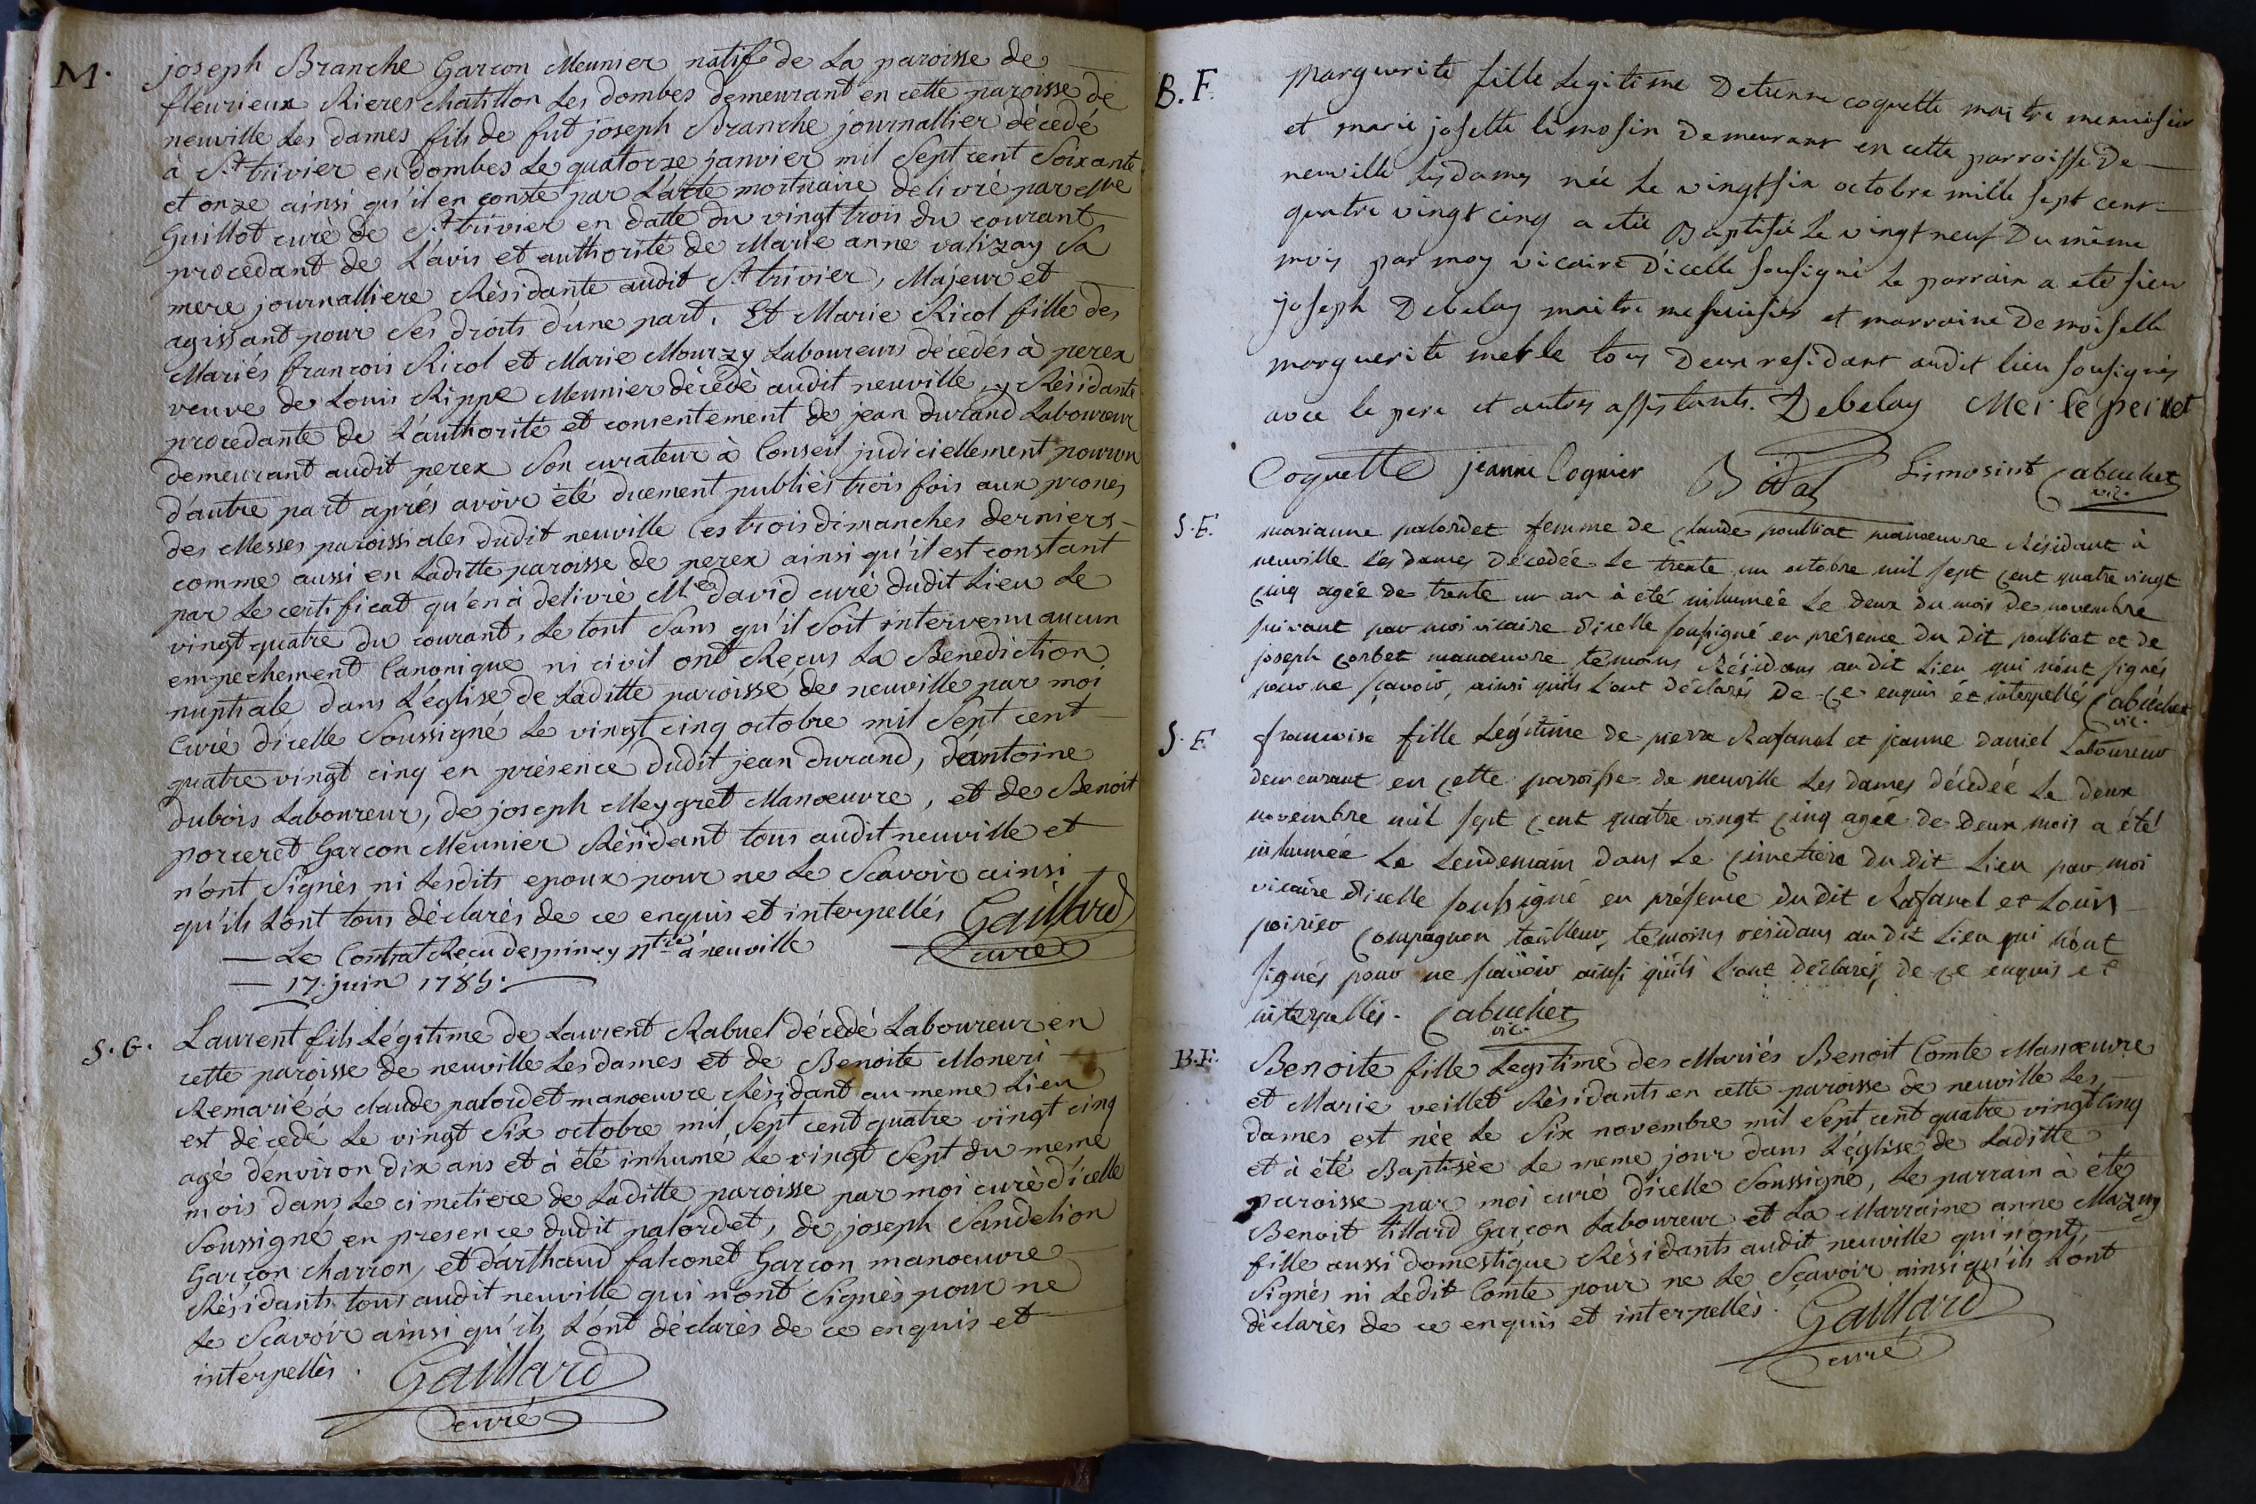 M. joseph Branche Garcon Meunier natif de La paroisse de
fleurieux Rieres chatillon Les dombes demeurant en cette paroisse de
neuville Les dames fils de fut joseph Branche journallier décedé
à St. trivier en dombes Le quatorze janvier mil Sept cent Soixante
et onze ainsi qu'il en conste par L'acte mortuaire delivré par Mre
Guillot curé de St. trivier en datte du vingt trois du courant
procedant de L'avis et authorité de Marie anne valizay Sa
mere journalliere Résidante audit St. trivier, Majeur et
agissant pour Ses droits d'une part. Et Marie Ricol fille des
Mariés francois Ricol et Marie Mourzy Laboureurs décedés à perex
veuve de Louis Rippe Meunier décedé audit neuville y Résidante
procedante de L'authorité et consentement de jean durand Laboureur
demeurant audit perex Son curateur à Conseil judiciellement pourvu
d'autre part aprés avoir été duement publiés trois fois aux prones
des Messes paroissiales dudit neuville Ces trois dimanches derniers
comme aussi en Laditte paroisse de perex ainsi qu'il est constant
par Le certificat qu'en à delivré Me david curé dudit Lieu Le
vingt quatre du courant, Le tout Sans qu'il Soit intervenu aucun
empechement Canonique ni civil ont Reçus La Benediction
nuptiale dans L'église de Laditte paroisse de neuville par moi
Curé d'icelle Soussigné Le vingt cinq octobre mil Sept cent
quatre vingt cinq en présence dudit jean durand, d'antoine
dubois Laboureur, de joseph Meygret Manoeuvre, et de Benoit
porceret Garcon Meunier Résidant tous audit neuville et
n'ont Signés ni Lesdits epoux pour ne Le Scavoir ainsi
qu'ils L'ont tous déclarés de ce enquis et interpellés Gaillard
curé
Le Contrat Recu despiney ntre à neuville
17. juin 1785.
S. G. Laurent fils Légitime de Laurent Rabuel décedé Laboureur en
cette paroisse de neuville Les dames et de Benoite Moneri
Remarié à claude palordet manoeuvre Résidant au meme Lieu
est décedé Le vingt Six octobre mil Sept cent quatre vingt cinq
agé d'environ dix ans et à été inhumé Le vingt Sept du meme
mois dans Le cimetiere de Laditte paroisse par moi curé d'icelle
Soussigné en presence dudit palordet, de joseph Sandelion
Garçon charron, et d'arthaud falconet Garçon manoeuvre
Résidants tous audit neuville qui n'ont Signés pour ne
Le Scavoir ainsi qu'ils L'ont déclarés de ce enquis et
interpellés. Gaillard
curé
B. F. Marguerite fille Legitime Detienne coquette maitre menuisier
et marie josette limosin Demeurant en cette parroisse De
neuville les dames née Le vingt six octobre mille sept cent
quatre vingt cinq a eté Baptisée Le vingt neuf Du même
mois par moy vicaire D'icelle sousigné Le parrain a eté sieur
joseph Debelay maitre menuisier et marraine Demoiselle
marguerite merle tous Deux residant audit lieu sousignés
avec le pere et autres assistants. Debelay Merle perret
Coquette jeanne Cognier Bidal Limosint Cabuchet
vic.
S. F. marianne palordet femme de Claude poulliat manoeuvre Résidant à
neuville les dames Décédée Le trente un octobre mil sept cent quatre vingt
cinq agée de trente un an à été inhumée Le Deux du mois de novembre
suivant par moi vicaire d'icelle soussigné en présence Du Dit poulliat et de
joseph corbet manoeuvre témoins Résidans au dit Lieu qui n'ont signés
pour ne scavoir, ainsi qu'ils L'ont déclarés De ce enquis et interpellés Cabuchet
vic.
S. F. francoise fille Légitime de pierre Rafanel et jeanne daniel Laboureur
demeurant en cette paroisse de neuville Les dames décédée Le deux
novembre mil sept cent quatre vingt cinq agée de deux mois a été
inhumée Le Lendemain dans Le cimetière du dit Lieu par moi
vicaire d'icelle soussigné en présence du dit Rafanel et Louis
poirier compagnon tailleur, temoins résidans au dit Lieu qui n'ont
signés pour ne scavoir ainsi qu'ils L'ont déclarés, de ce enquis et
interpellés. Cabuchet
vic.
B.F. Benoite fille Legitime des Mariés Benoit Comte Manoeuvre
et Marie veillet Résidants en cette paroisse de neuville Les
dames est née Le Six novembre mil Sept cent quatre vingt cinq
et à été Baptisée Le meme jour dans L'église de Laditte
paroisse par moi curé d'icelle Soussigné, Le parrain à été
Benoit tillard Garçon Laboureur et La Marraine anne Mazuy
fille aussi domestique Résidants audit neuville qui n'ont
Signés ni Ledit Comte pour ne Le Sçavoir ainsi qu'ils L'ont
déclarés de ce enquis et interpellés. Gaillard
curé